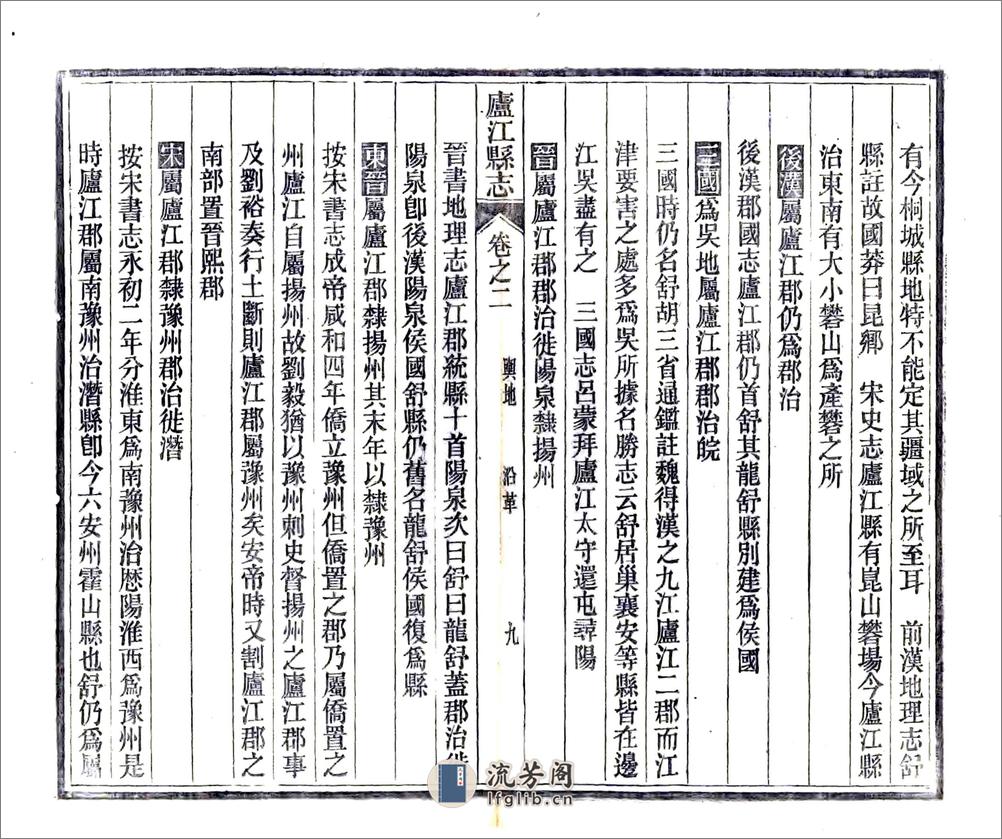 有今桐城縣地特不能定其疆域之所至耳　前漢地理志舒
縣註故國莽曰昆鄉　宋史志廬江縣有崑山礬場今廬江縣
治東南有大小礬山爲產礬之所
後漢屬廬江郡仍爲郡治
後漢郡國志廬江郡仍首舒其龍舒縣別建爲侯國
三國爲吳地屬廬江郡郡治皖
三國時仍名舒胡三省通鑑註魏得漢之九江廬江二郡而江
津要害之處多爲吳所據名勝志云舒居巢襄安等縣皆在邊
江吳盡有之　三國志呂蒙拜廬江太守還屯尋陽
晉屬廬江郡郡治徙陽泉隸揚州
晉書地理志廬江郡統縣十首陽泉次曰舒曰龍舒蓋郡治徙
陽泉卽後漢陽泉侯國舒縣仍舊名龍舒侯國復爲縣
廬江縣志
卷之二
輿地
沿革
九
東晉屬廬江郡隸揚州其末年以隸豫州
按宋書志成帝咸和四年僑立豫州但僑置之郡乃屬僑置之
州廬江自屬揚州故劉毅猶以豫州刺史督揚州之廬江郡事
及劉裕奏行土斷則廬江郡屬豫州矣安帝時又割廬江郡之
南部置晉熙郡
宋屬廬江郡隸豫州郡治徙潛
按宋書志永初二年分淮東爲南豫州治歷陽淮西爲豫州是
時廬江郡屬南豫州治潛縣卽今六安州霍山縣也舒仍爲屬
流芳阁
lfglib.cn